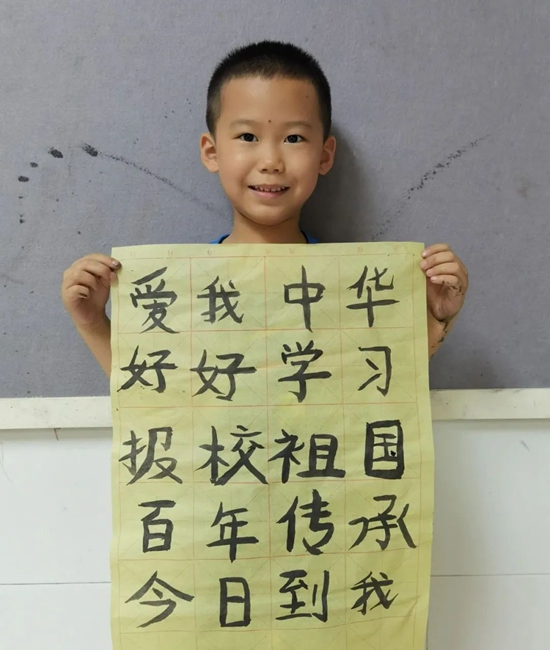 爱我中华
好好学习
报校祖国
百年传承
今日到我